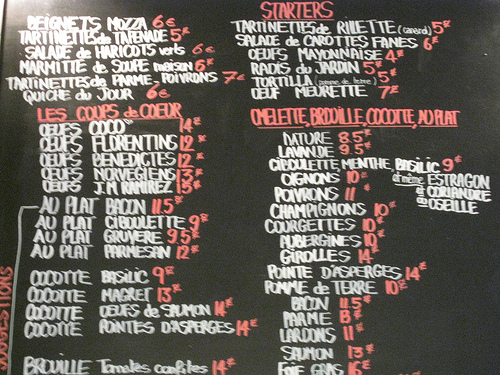 BEIGNETS MOZZA 6€
TARTINETTES de TAPENADE 5€
SALADE de HARICOTS verts 6€
MARMITTE de SOUPE maison 6€
TARTINETTES de PARME-POIVRONS 7€
QUICHE du JOUR 6€
LES COUPS de COEUR
OEUFS COCO 14€
OEUFS FLORENTINS 12€
OEUFS BENEDICTES 12€
OEUFS NORVEGIENS 13€
OEUFS J.M RAMIREZ 13€
AU PLAT BACON 11.5€
AU PLAT CIBOULETTE 9€
AU PLAT GRUYERE 9.5€
AU PLAT PARMESAN 12€
COCOTTE BASILIC 9€
COCOTTE MAGRET 13€
COCOTTE OEUFS de SAUMON 14€
COCOTTE POINTES D'ASPERGES 14€
BROUILLE Tomates confites 14€
SUGGESTIONS
STARTERS
TARTINETTES de RILLETTE (canard) 5€
SALADE de CAROTTES FANES 6€
OEUFS MAYONNAISE 4€
RADIS du JARDIN 5€
TORTILLA (pomme de terre) 5€
OEUF MEURETTE 7€
OMELETTE, BROUILLE, COCOTTE, AU PLAT
NATURE 8.5€
LAVANDE 9.5€
CIBOULETTE MENTHE, BASILIC 9€
et même ESTRAGON
et CORIANDRE
ou OSEILLE
OIGNONS 10€
POIVRONS 11€
CHAMPIGNONS 10€
COURGETTES 10€
AUBERGINES 10€
GIROLLES 14€
POINTE D'ASPERGES 14€
POMME de TERRE 10€
BACON 11.5€
PARME 13€
LARDONS 11€
SAUMON 13€
FOIE GRAS 16€